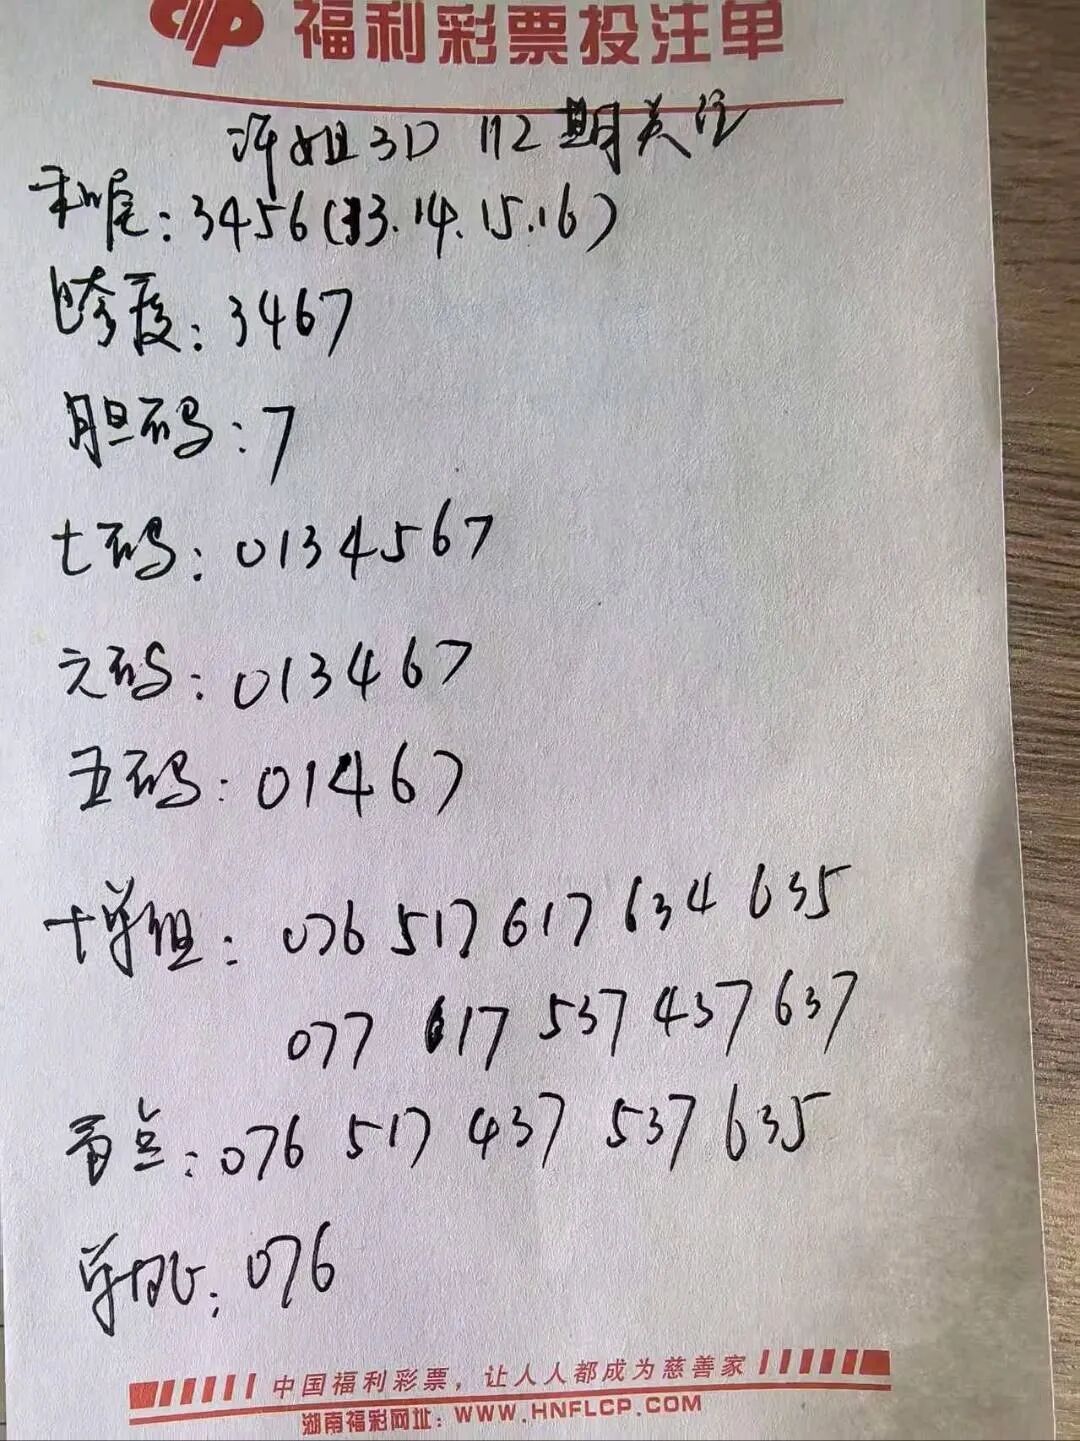 福利彩票投注单
姐3D 112期关注
和尾:3456(13.14.15.16)
跨度:3467
胆码:7
七码:0134567
六码:013467
五码:01467
十单组:076 517 617 634 635
077 617 537 437 637
看点:076 517 437 537 635
单挑:076
中国福利彩票,让人人都成为慈善家
湖南福彩网址:WWW.HNFLCP.COM